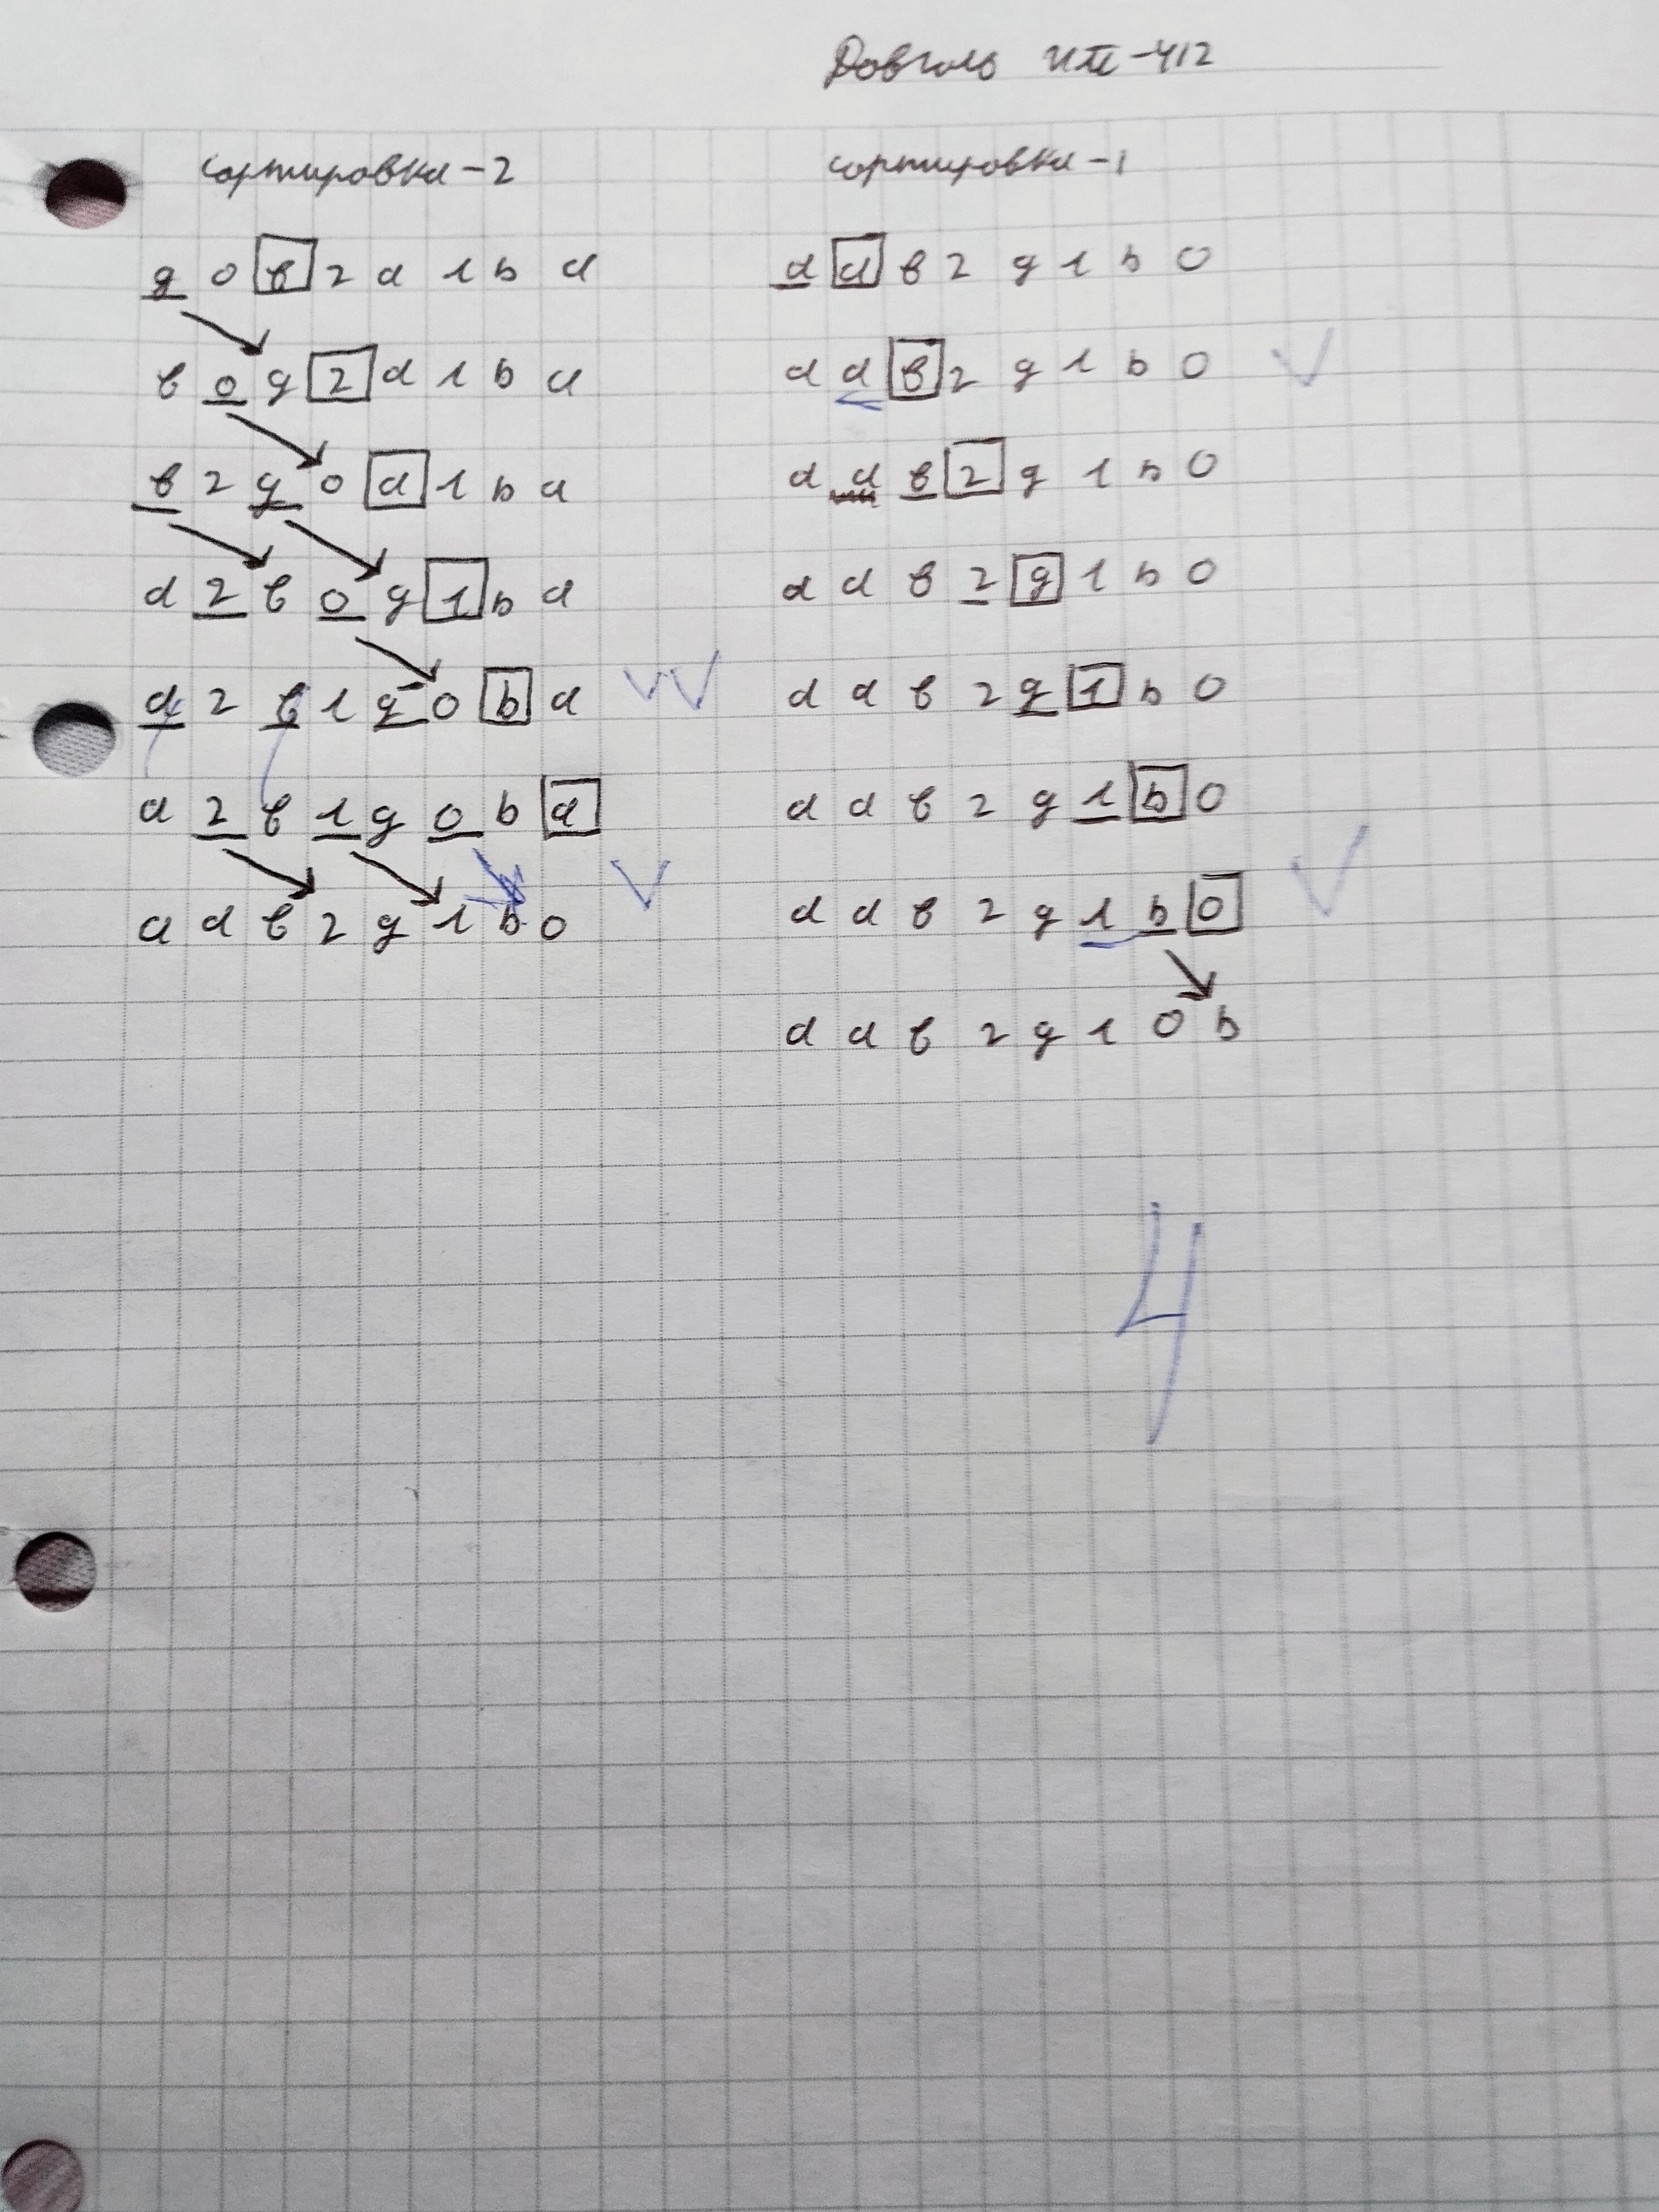 Довгаль
сортировка-2
д о в г а л ь а
в о д г а л ь а
в г д о а л ь а
а г в о д л ь а
а г в л д о ь а
а г в л д о ь а
а а в г д л ь о
сортировка-1
а а в г д л ь о
а а в г д л ь о
а а в г д л ь о
а а в г д л ь о
а а в г д л ь о
а а в г д л ь о
а а в г д л ь о
а а в г д л о ь
4